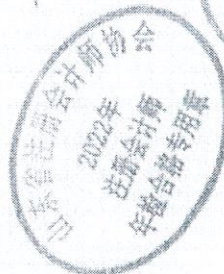 山东省注册会计师协会
2022年
注册会计师
年检合格专用章